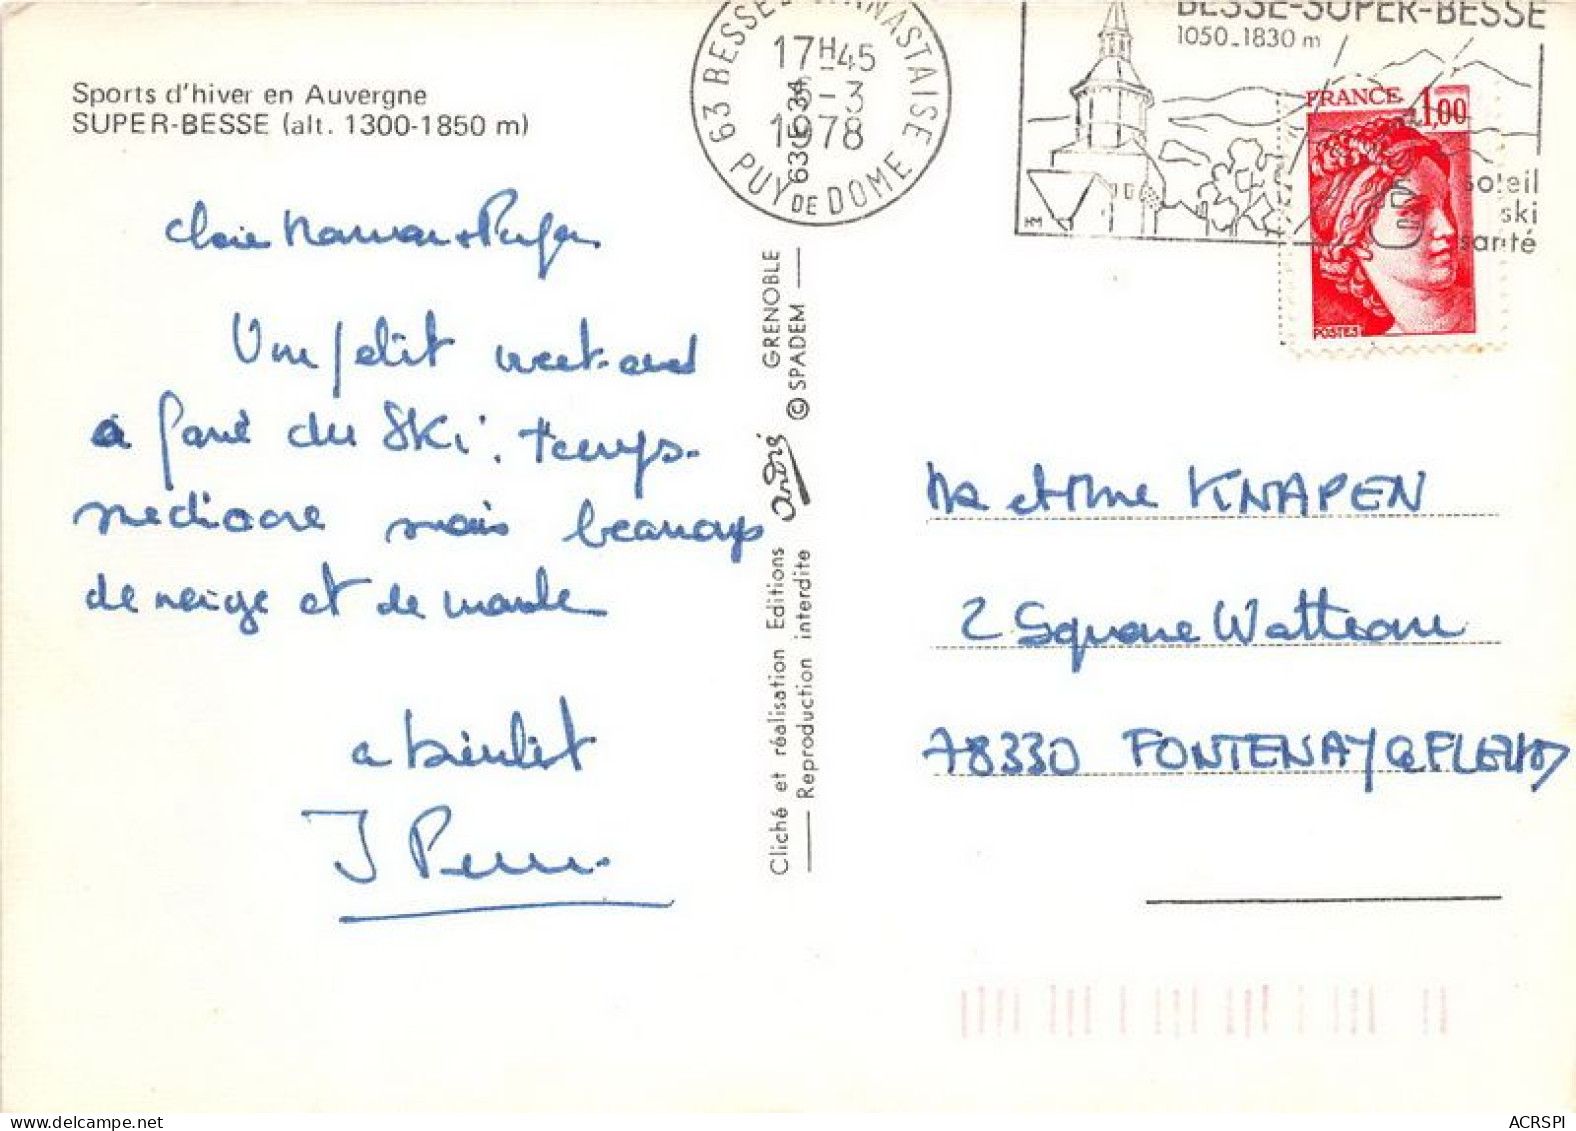 Sports d'hiver en Auvergne
SUPER-BESSE (alt. 1300-1850 m)
Un petit week-end
a fané du ski, temps-
médiocre mais beaucoup
de neige et de monde
a bientôt
Cliché et réalisation Editions André GRENOBLE
Reproduction interdite © SPADEM
63 BESSE
17H45
6-3
1978
PUY DE DOME
63 5034
BESSE-SUPER-BESSE
1050-1830 m
soleil
ski
santé
HM
FRANCE 1,00
POSTES
Mr et Mme KNAPEN
2 Square Watteau
78330 FONTENAY le FLEURY
ACRSPI